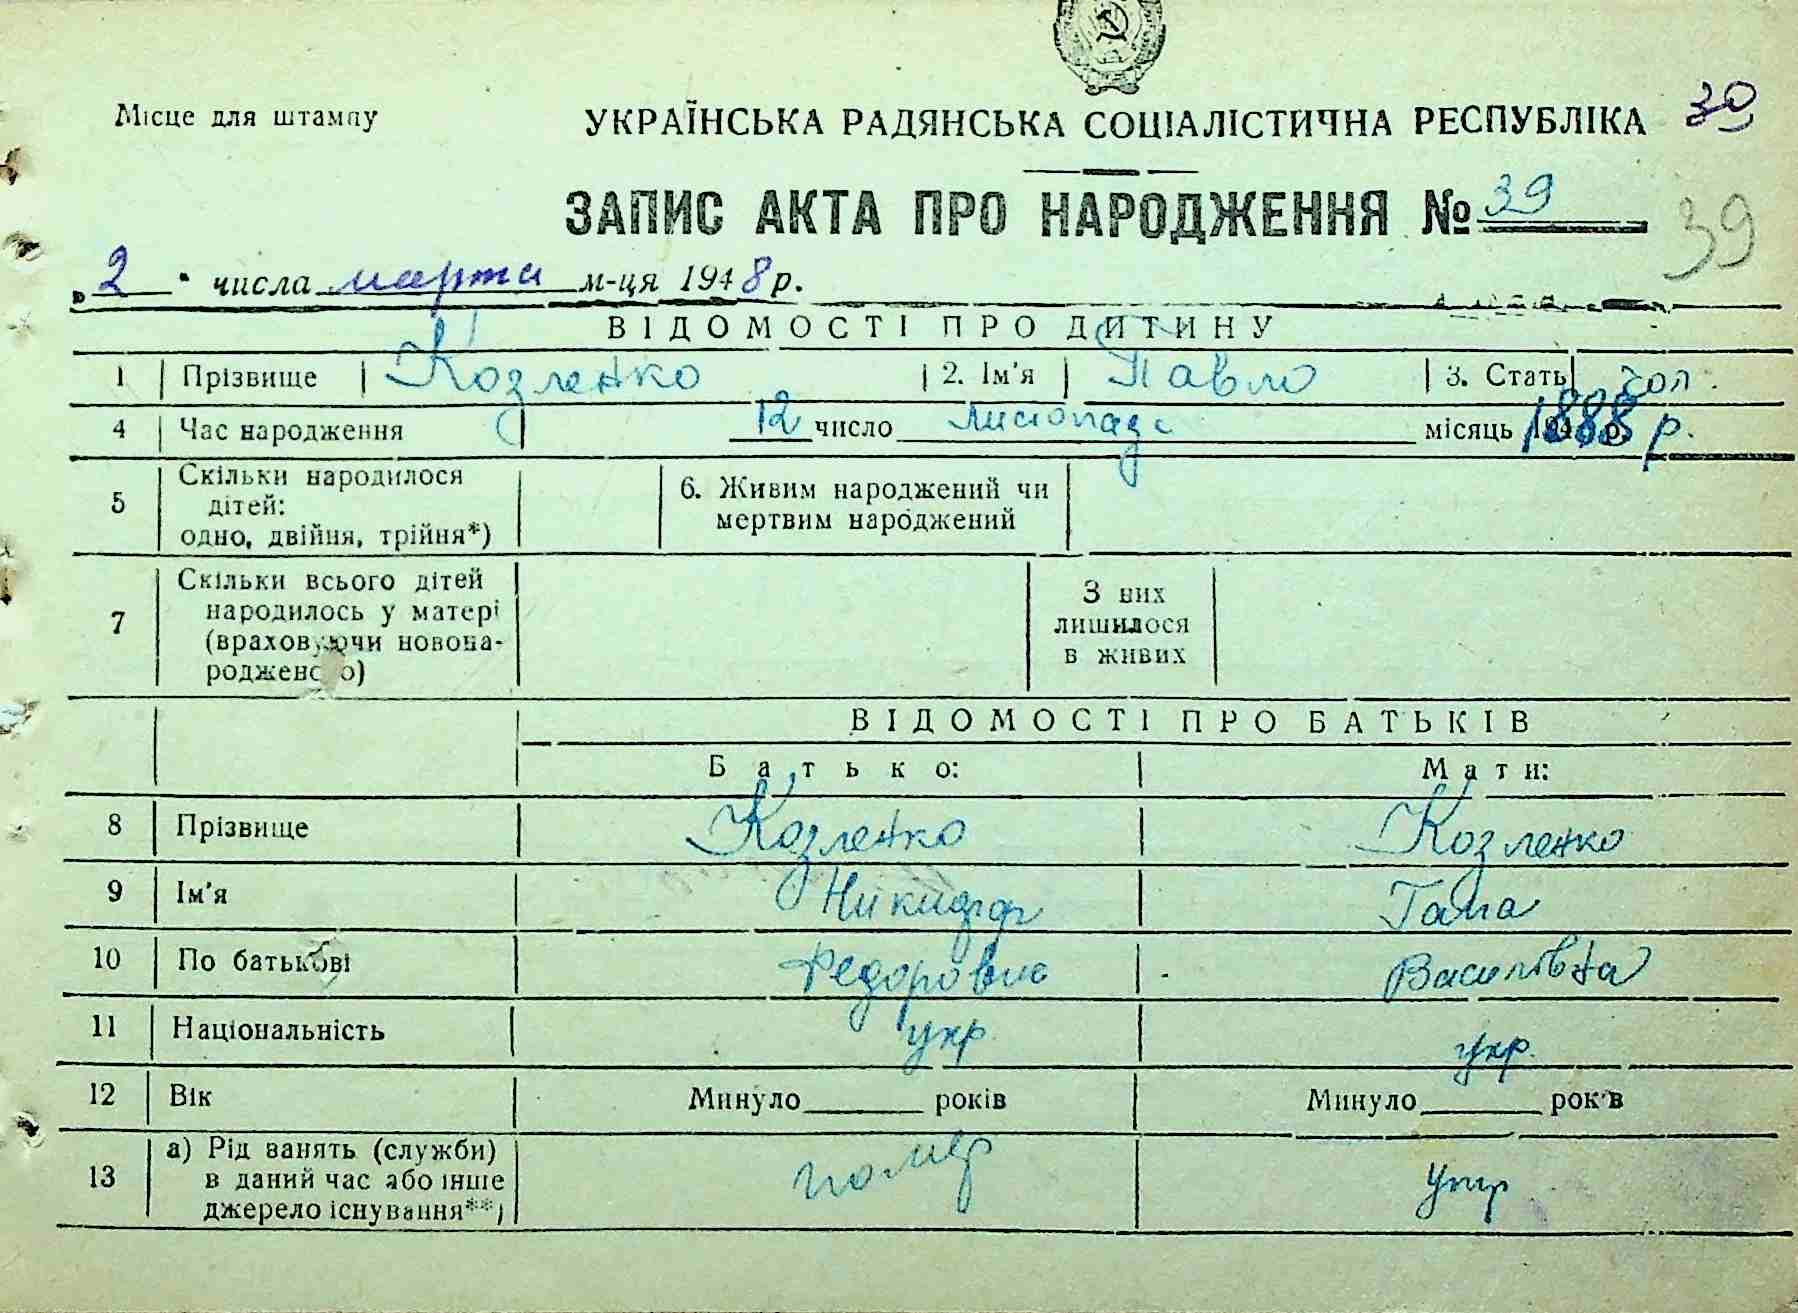 Місце для штампу
УКРАЇНСЬКА РАДЯНСЬКА СОЦІАЛІСТИЧНА РЕСПУБЛІКА 30
ЗАПИС АКТА ПРО НАРОДЖЕННЯ № 39 39
„ 2 " числа марта м-ця 1948 р.
ВІДОМОСТІ ПРО ДИТИНУ
1 Прізвище Козленко 2. Ім'я Павло 3. Стать чол.
4 Час народження 12 число листопада місяць 1888 р.
5 Скільки народилося дітей: одно, двійня, трійня*) 6. Живим народжений чи мертвим народжений
7 Скільки всього дітей народилось у матері (враховуючи новонародженого) З них лишилося в живих
ВІДОМОСТІ ПРО БАТЬКІВ
Батько: Мати:
8 Прізвище Козленко Козленко
9 Ім'я Никифор
10 По батькові Федорович Василівна
11 Національність укр укр.
12 Вік Минуло років Минуло років
13 а) Рід занять (служби) в даний час або інше джерело існування**) помер